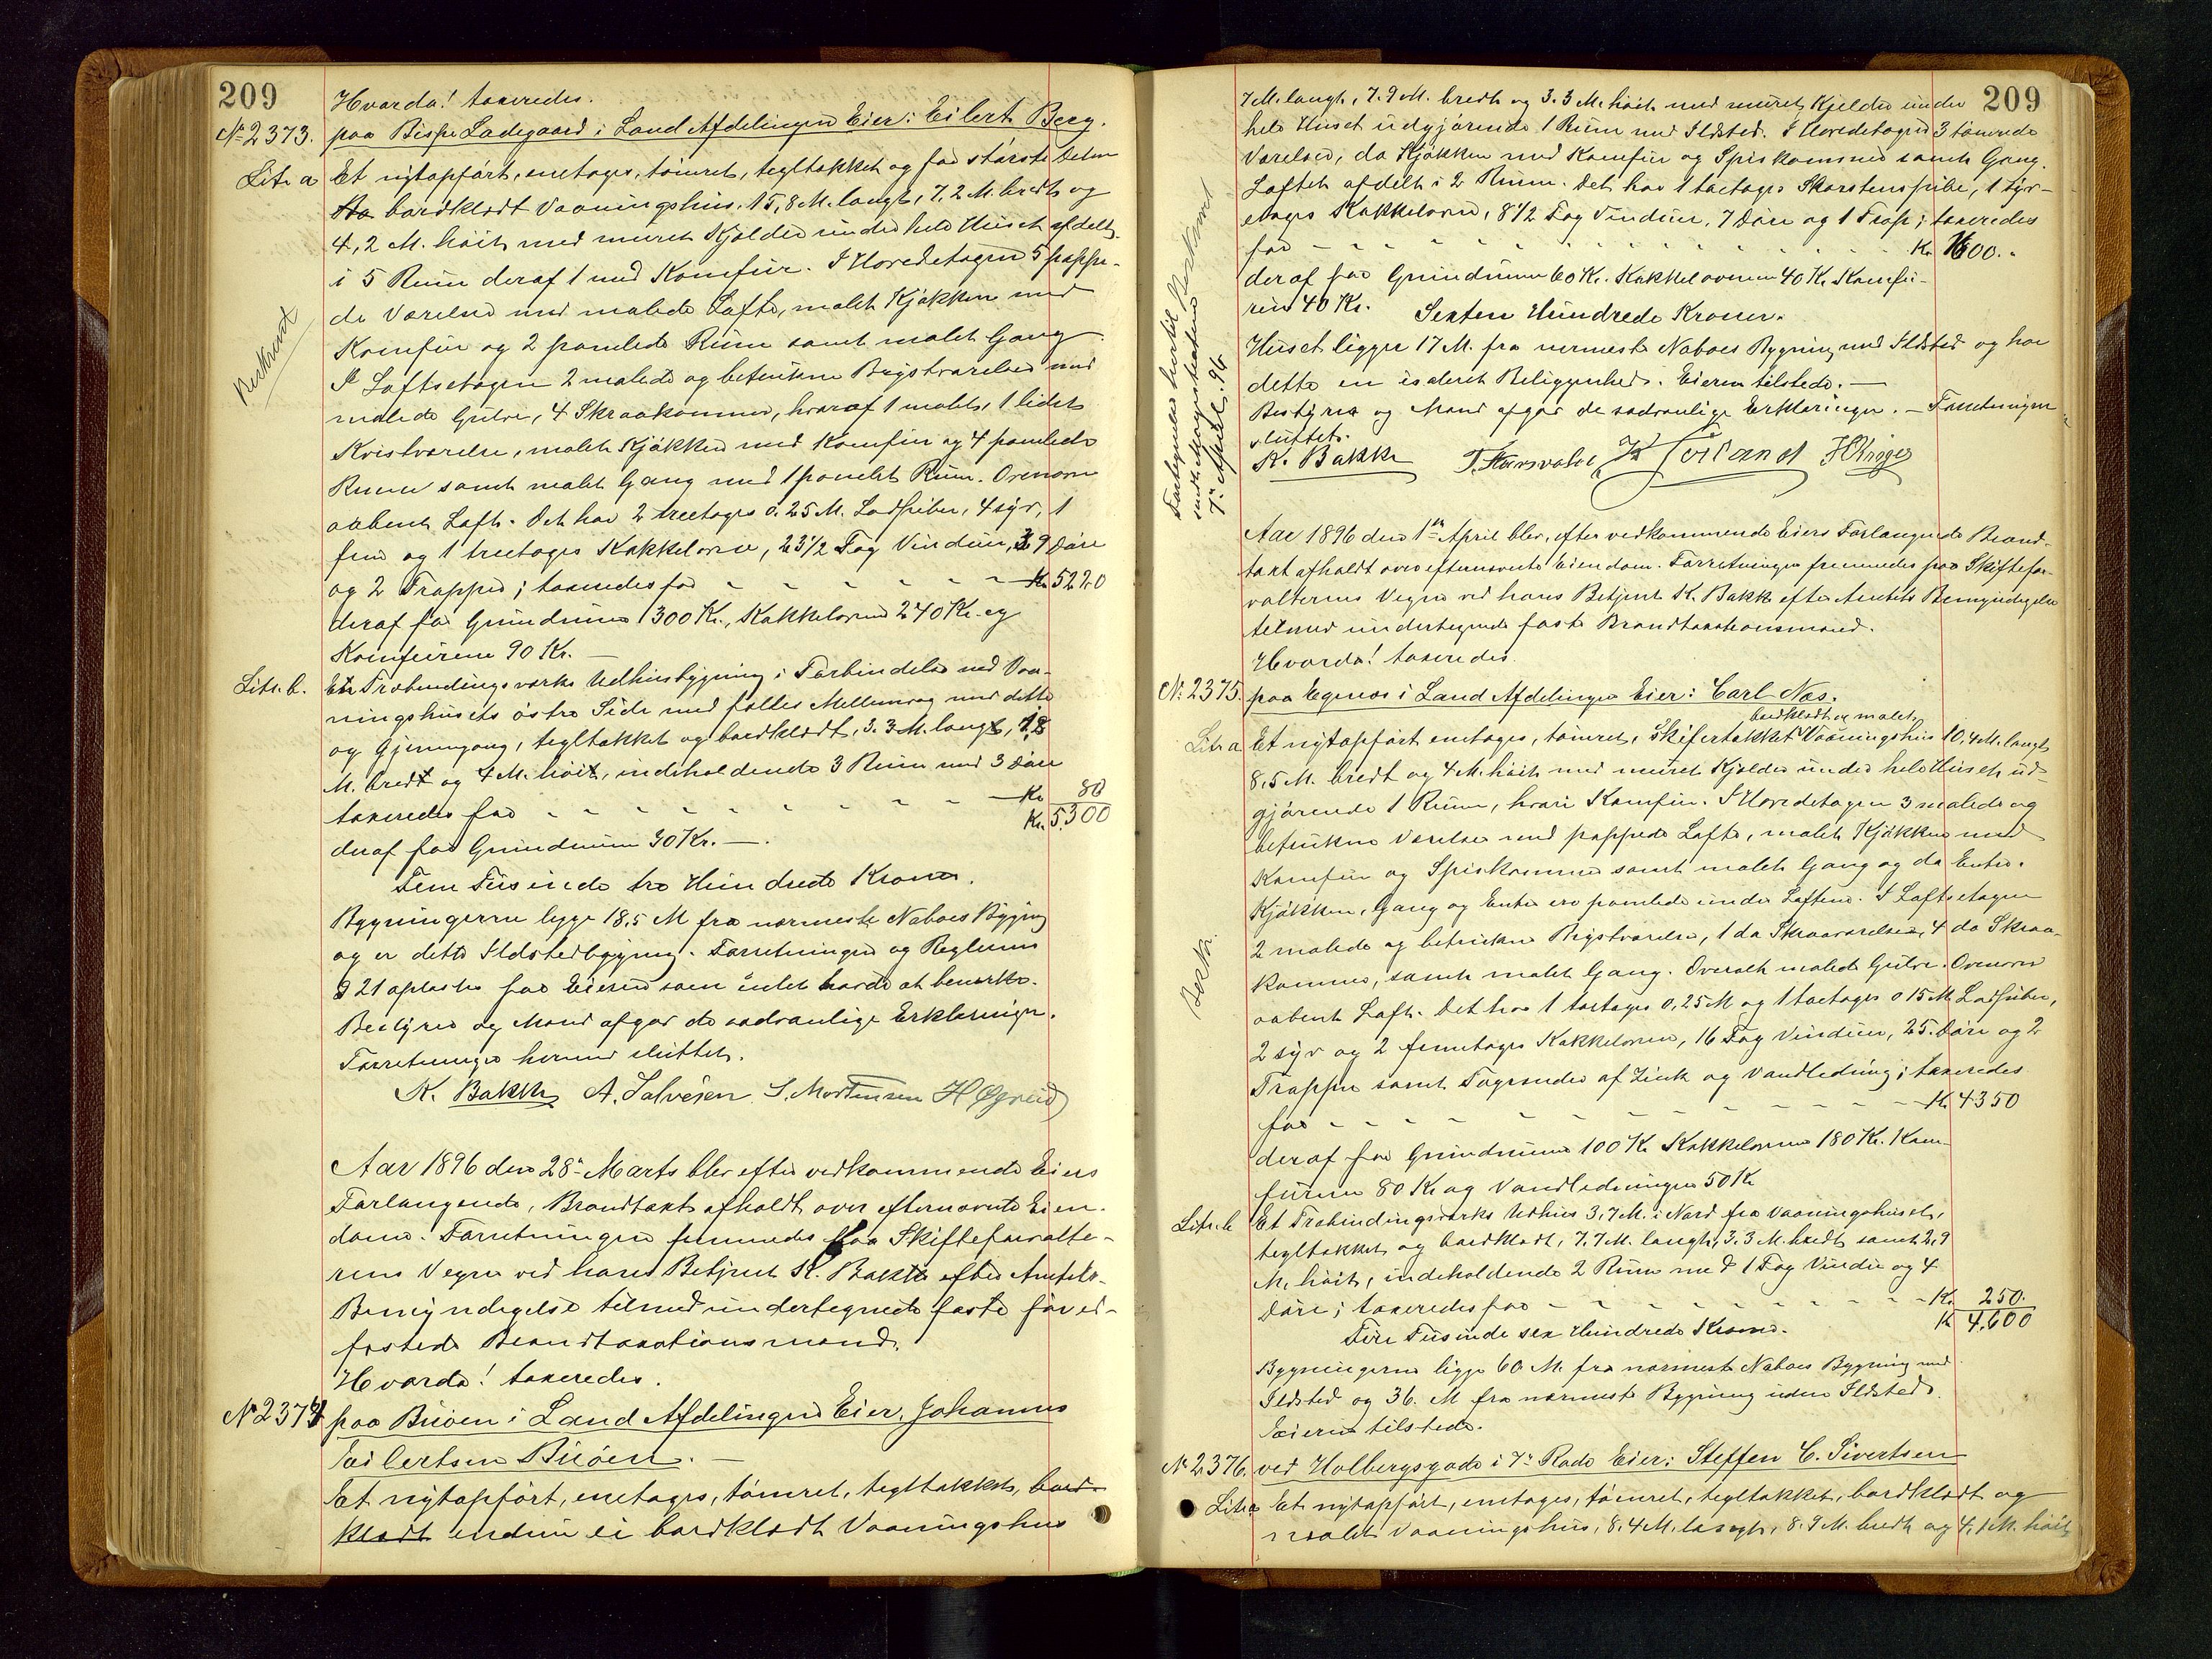 209
Hvorda! taxeredes.
No 2373. paa Bispe Ladegaard i Land Afdelingen Eier: Eilert Berg.
Litr a Et nytopført, enetages, tømret, tegltækket og for største Delen
bordklædt Vaaningshus, 15,8 M. langt, 7,2 M. bredt og
4,2 M. høit med muret Kjælder under hele Huset afdelt
i 5 Rum deraf 1 med Komfur. I Hovedetagen 5 pappe-
de Værelser med malede Lofte, malet Kjøkken med
Komfur og 2 panelede Rum samt malet Gang.
I Loftsetagen 2 malede og betrukne Brystværelser med
malede Gulve, 4 Skraakammer, hvoraf 1 malet, 1 lidet
Kvistværelse, malet Kjøkken med Komfur og 4 panelede
Rum samt malet Gang med 1 panelet Rum. Ovenover
aabent Loft. Det har 2 treetages 0.25 M. Lodpiber, 4 syv, 1
fem og 1 treetages Kakkelovne, 23 1/2 Fag Vinduer, 39 Døre
og 2 Trapper; taxeredes for - - - Kr 5220
deraf for Grundmur 1300 Kr., Kakkelovne 240 Kr. og
Komfurene 90 Kr. —
Bemærket
Litr. b. Et Træbindingsværks Udhusbygning i Forbindelse med Vaa-
ningshusets østre Side med fælles Mellemvæg med dette
og Gjennemgang, tegltækket og bordklædt, 3.3 M. langt,
M. bredt og 4 M. høit, indeholdende 3 Rum med 3 Døre
taxeredes for - - - Kr 80
Kr. 5.300
deraf for Grundmur 30 Kr. —.
Fem Tusinde tre Hundrede Kroner.
Bygningerne ligge 18,5 M fra nærmeste Naboes Bygning
og er dette Ildstedbygning. Forretningen og Reglerne
§ 21 oplæstes for Eieren som intet havde at bemærke.
Bestyrer og Mænd afgav de sædvanlige Erklæringer.
Forretningen hermed sluttet.
K. Bakke A. Salvesen S. Mortensen H Øgreid
Aar 1896 den 28de Marts blev efter vedkommende Eiers
Forlangende, Brandtaxt afholdt over efternævnte Eien-
dom. Forretningen fremmedes paa Skifteforvalte-
rens Vegne ved hans Betjent K. Bakke efter Amtets
Bemyndigelse tilmed undertegnede faste før ed-
fæstede Brandtaxationsmænd.
Hvorda! taxeredes.
No 2374 paa Buøen i Land Afdelingen Eier, Johannes
Eilertsen Buøen. —
Et nytopført, enetages, tømret, tegltækket, bord-
klædt endnu ei bordklædt Vaaningshus
209
7 M. langt, 7.9 M. bredt og 3.3 M. høit med muret Kjelder under
hele Huset udgjørende 1 Rum med Ildsted. I Hovedetagen 3 tømrede
Værelser, do Kjøkken med Komfur og Spiskammer samt Gang.
Loftet afdelt i 2 Rum. Det har 1 toetages Skorstenspibe, 1 syv-
etages Kakkelovn, 8 1/2 Fag Vinduer, 7 Døre og 1 Trap; taxeredes
for - - - Kr. 1600.
deraf for Grundmuren 60 Kr. Kakkelovnen 40 Kr. Komfu-
ren 40 Kr. Sexten Hundrede Kroner.
Huset ligger 17 M. fra nærmeste Naboes Bygning med Ildsted og har
dette en isoleret Beliggenhed. Eieren tilstede. —
Bestyrer og Mænd afgav de sædvanlige Erklæringer. — Forretningen
sluttet.
K. Bakke
Magistraten
7. April. 96.
Aar 1896 den 1ste April blev, efter vedkommende Eiers Forlangende Brand-
taxt afholdt over efternævnte Eiendom. Forretningen fremmedes paa Skiftefor-
valterens Vegne ved hans Betjent K. Bakke efter Amtets Bemyndigelse
tilmed undertegnede faste Brandtaxationsmænd.
Hvorda! taxeredes.
No. 2375. paa Egenæs i Land Afdelingen Eier: Carl Næs.
bordklædt og malet
Litr. a Et nytopført enetages, tømret, skifertækket Vaaningshus 10,4 M. langt
8,5 M. bredt og 4 M. høit med muret Kjælder under hele Huset ud-
gjørende 1 Rum, hvori Komfur. I Hovedetagen 3 malede og
betrukne Værelser med pappede Lofte, malet Kjøkken med
Komfur og Spiskammer samt malet Gang og do Entre.
Kjøkken, Gang og Entre ere panelede under Loftene. I Loftsetagen
2 malede og betrukne Brystværelser, 1 do Skraaværelse, 4 do Skraa-
kammer, samt malet Gang. Overalt malede Gulve. Ovenover
aabent Loft. Det har 1 toetages 0,25 M og 1 toetages 0 15 M Lodpiber,
2 syv og 2 femetages Kakkelovne, 16 Fag Vinduer, 25 Døre og 2
Trapper samt Tagrender af Zink og Vandledning; taxeredes
for - - - Kr. 4350
deraf for Grundmuren 100 Kr Kakkelovnene 180 Kr. Kom-
furene 80 Kr og Vandledningen 50 Kr
Litr. b Et Træbindingsværks Udhus 3,7 M. i Nord fra Vaaningshuset,
tegltækket og bordklædt, 7,7 M. langt, 3.3 M. bredt samt 2,9
M. høit, indeholdende 2 Rum med 1 Fag Vindu og 4
Døre; taxeredes for - - - Kr. 250.
Fire Tusinde sex Hundrede Kroner. Kr 4.600
Bygningerne ligge 60 M. fra nærmeste Naboes Bygning med
Ildsted og 36. M fra nærmeste Bygning uden Ildsted.
Eieren tilstede.
No 2376. ved Holbergsgade i 7de Rode Eier: Steffen C. Sivertsen
Litr a Et nytopført, enetages, tømret, tegltækket, bordklædt og
malet Vaaningshus, 8.4 M. langt, 8.9 M. bredt og 4,1 M. høit